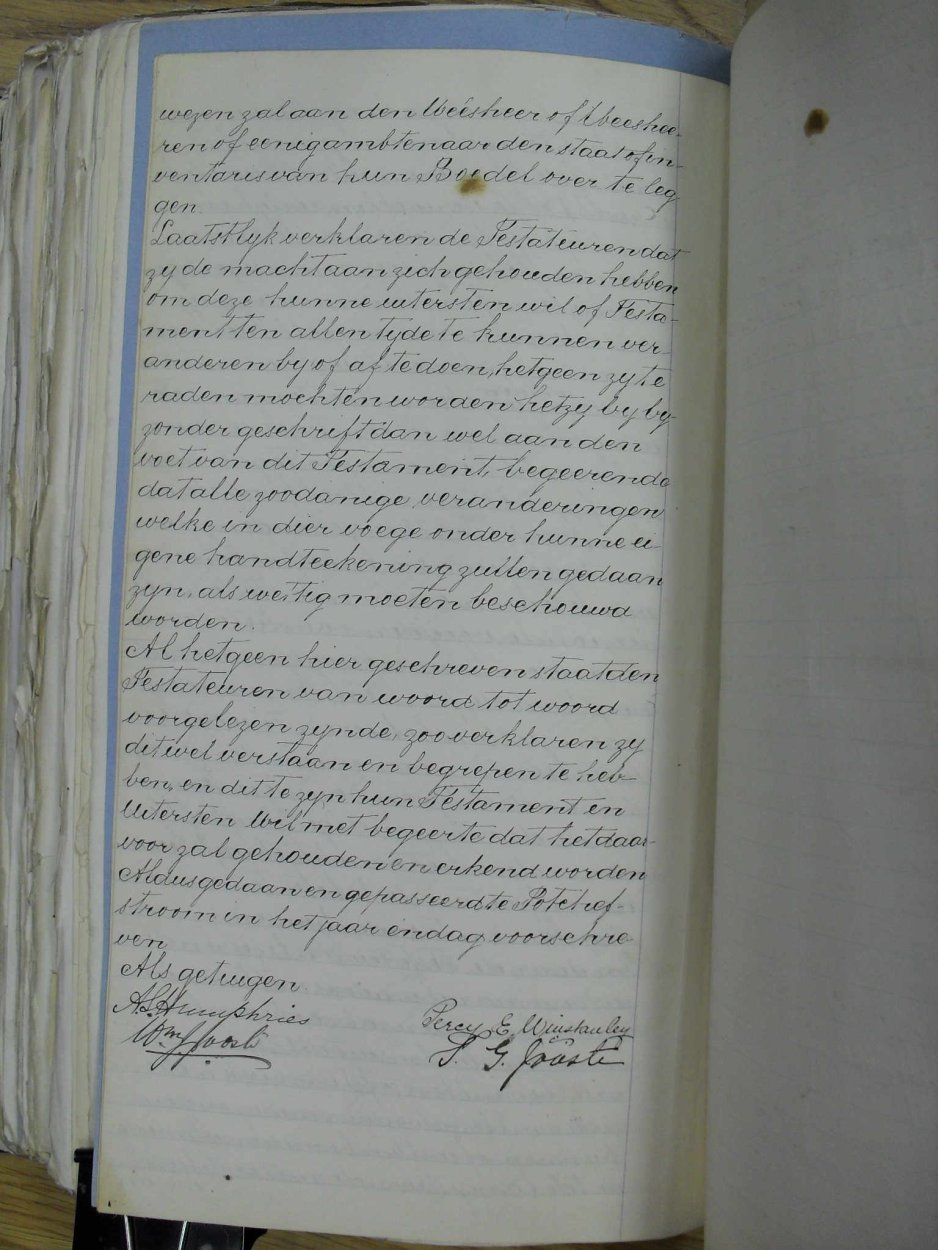 wezen zal aan den Weesheer of Weeshee-
ren of eenig ambtenaar den staat of in-
ventaris van hun Boedel over te leg
gen.
Laatstlyk verklaren de Testateuren dat
zy de macht aan zich gehouden hebben
om deze hunne uitersten wil of Testa-
ment ten allen tyde te kunnen ver-
anderen by of af te doen, hetgeen zy te
raden mochten worden hetzy by by
zonder geschrift dan wel aan den
voet van dit Testament, begeerende
dat alle zoodanige veranderingen
welke in dier voege onder hunne ei
gene handteekening zullen gedaan
zyn, als wettig moeten beschouwd
worden.
Al hetgeen hier geschreven staat den
Testateuren van woord tot woord
voorgelezen zynde, zoo verklaren zy
dit wel verstaan en begrepen te heb-
ben, en dit te zyn hun Testament en
Uitersten Wil met begeerte dat het daar
voor zal gehouden en erkend worden
Aldus gedaan en gepasseerd te Potchef-
stroom in het jaar en dag voorschre
ven
Als getuigen.
A. S. Humphries
Percy E. Winstanley
Wm J Joost
S. G. Jooste